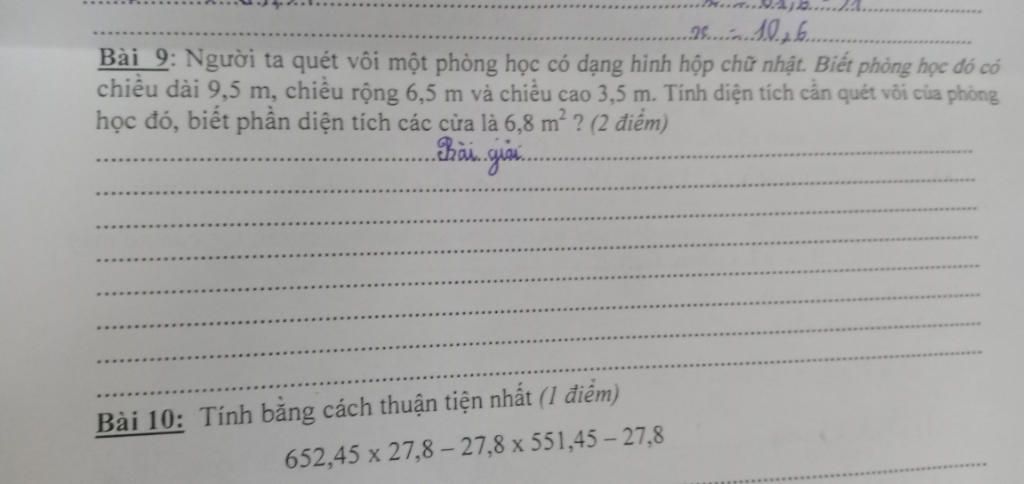 x = 10,6
Bài 9: Người ta quét vôi một phòng học có dạng hình hộp chữ nhật. Biết phòng học đó có
chiều dài 9,5 m, chiều rộng 6,5 m và chiều cao 3,5 m. Tính diện tích cần quét vôi của phòng
học đó, biết phần diện tích các cửa là 6,8 m² ? (2 điểm)
Bài giải
Bài 10: Tính bằng cách thuận tiện nhất (1 điểm)
652,45 x 27,8 – 27,8 x 551,45 – 27,8